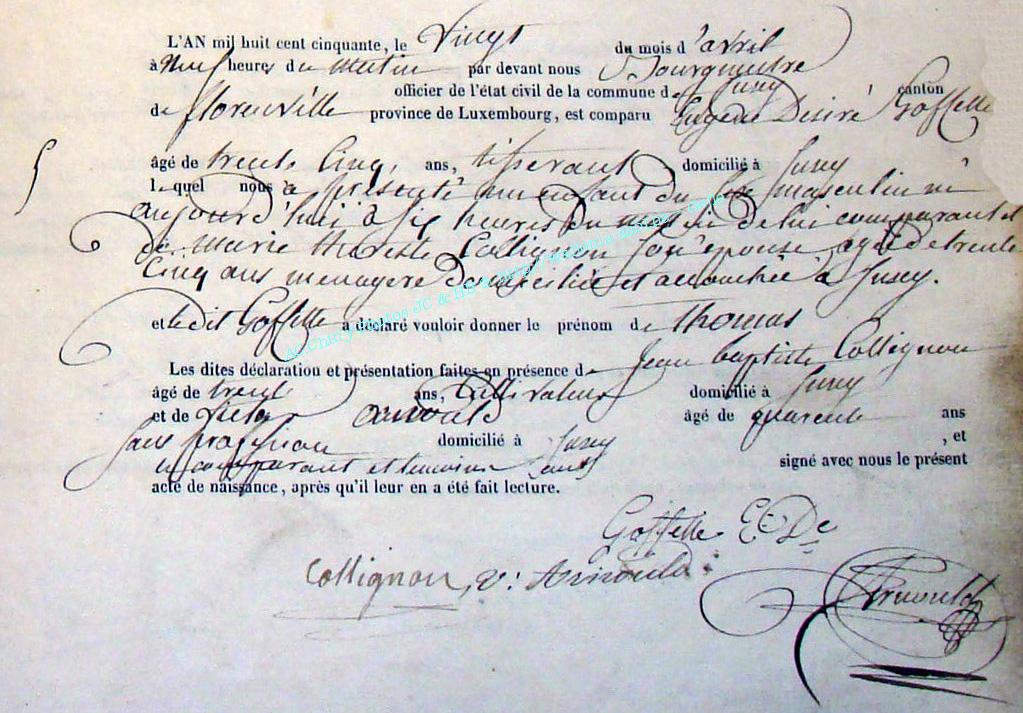 L'AN mil huit cent cinquante, le vingt du mois d'avril
à neuf heures du matin par devant nous Bourgmestre
officier de l'état civil de la commune de Suxy canton
de florenville province de Luxembourg, est comparu Eugène Désiré Goffette
5 âgé de trente cinq, ans, tisserant domicilié à Suxy
lequel nous a présenté un enfant du sexe masculin né
aujourd'hui à six heures du matin de lui comparant et
de Marie Collignon son épouse agée de trente
cinq ans menagere domiciliée et accouchée à Suxy.
et ledit Goffette a déclaré vouloir donner le prénom de thomas
Les dites déclaration et présentation faites en présence de Jean baptiste Collignon
âgé de trente ans, Cultivateur domicilié à Suxy
et de Victor arnould âgé de quarente ans
sans profession domicilié à Suxy , et
comparant et temoins ont signé avec nous le présent
acte de naissance, après qu'il leur en a été fait lecture.
Goffette E De
Collignon, v: Arnould
Arnould